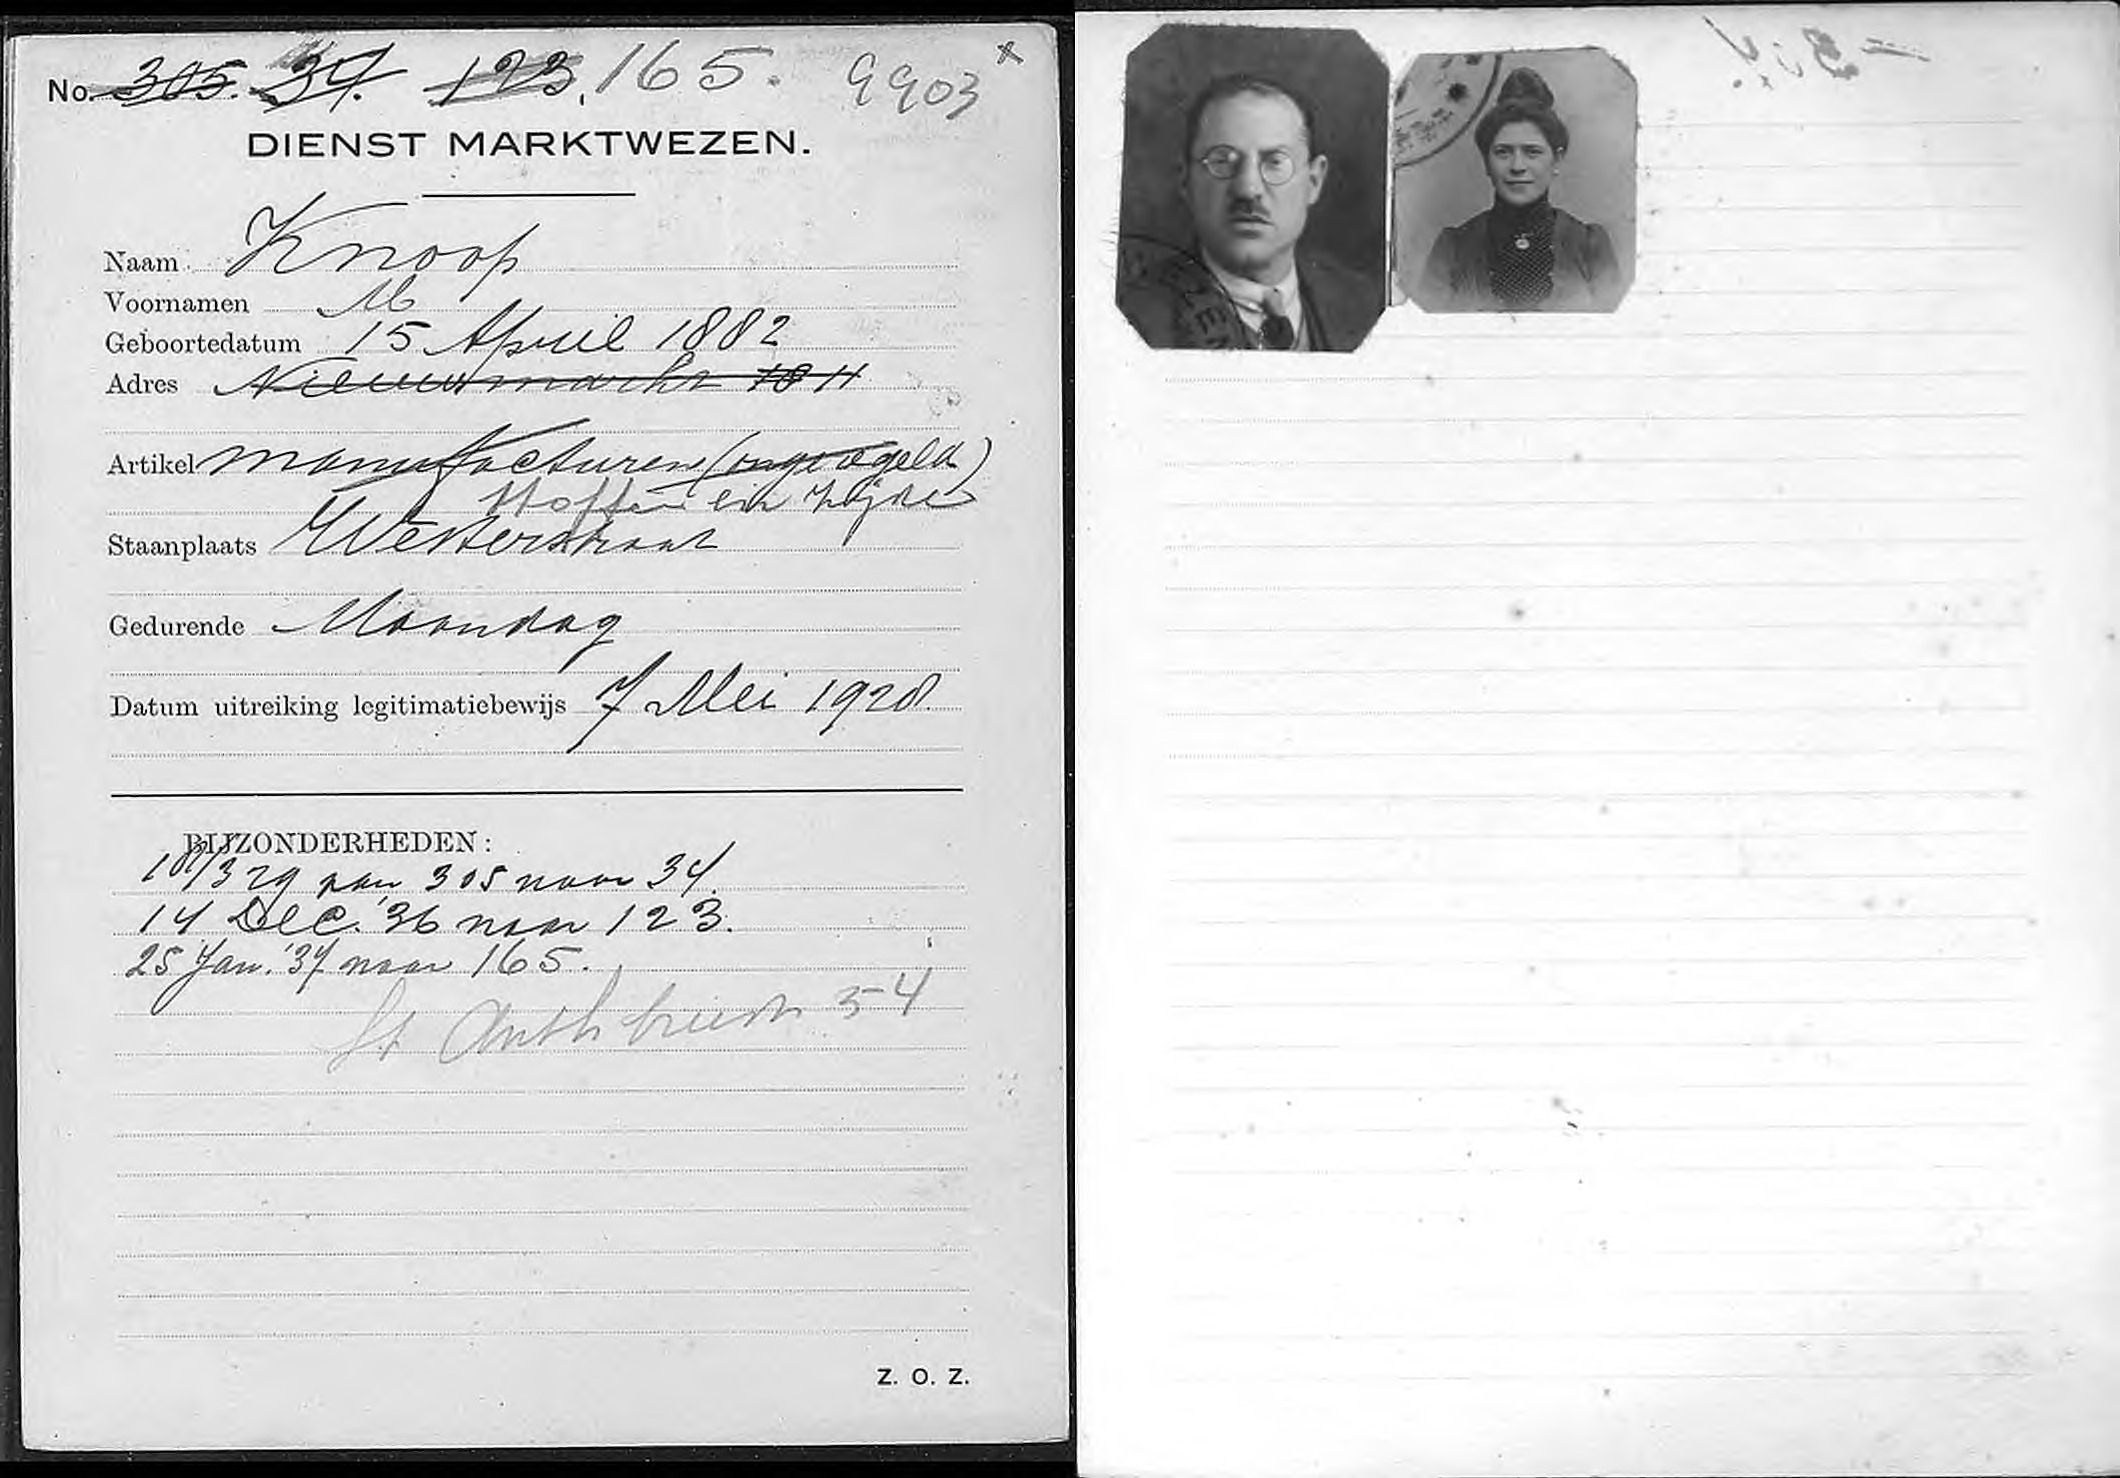 No. 305. 34. 123. 165. 9903 x
DIENST MARKTWEZEN.
Naam Knoop
Voornamen M
Geboortedatum 15 April 1882
Adres Nieuwmarkt 18 11
Artikel manufacturen (ongeregeld)
Stoffen en zijde
Staanplaats Westerstraat
Gedurende Maandag
Datum uitreiking legitimatiebewijs 7 Mei 1928.
BIJZONDERHEDEN:
18/3 29 van 305 naar 34.
14 Dec. '36 naar 123.
25 Jan. '37 naar 165.
St Anth breestr 54
Z. O. Z.